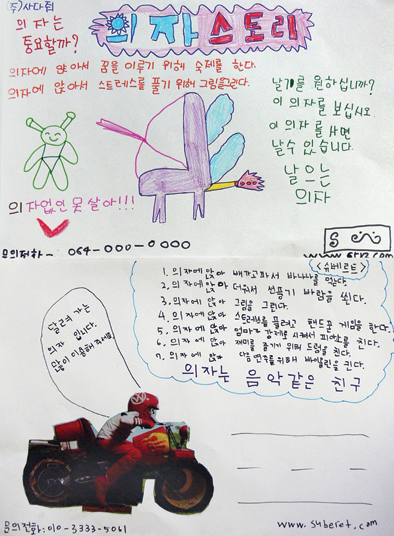 주)사다줘
의자스토리
의자는
중요할까?
의자에 앉아서 꿈을 이루기 위해 숙제를 한다.
의자에 앉아서 스트레스를 풀기 위해 그림을 그린다.
날기를 원하십니까?
이 의자를 보십시오
이 의자를 사면
날 수 있습니다.
날으는
의자
의자없인 못 살아!!!
문의전화 - 064-000-0000
<슈베르트>
1. 의자에 앉아 배가 고파서 바나나를 먹는다.
2. 의자에 앉아 더워서 선풍기 바람을 쐰다.
3. 의자에 앉아 그림을 그린다.
4. 의자에 앉아 스트레스를 풀려고 핸드폰 게임을 한다.
5. 의자에 앉아 엄마가 강제로 시켜서 피아노를 친다.
6. 의자에 앉아 재미를 즐기기 위해 드럼을 친다.
7. 의자에 앉아 연주를 위해 바이올린을 켠다.
의자는 음악같은 친구
달려가는
의자 입니다.
많이 이용해 주세요.
문의전화: 010-3333-5061
www.syberet.com